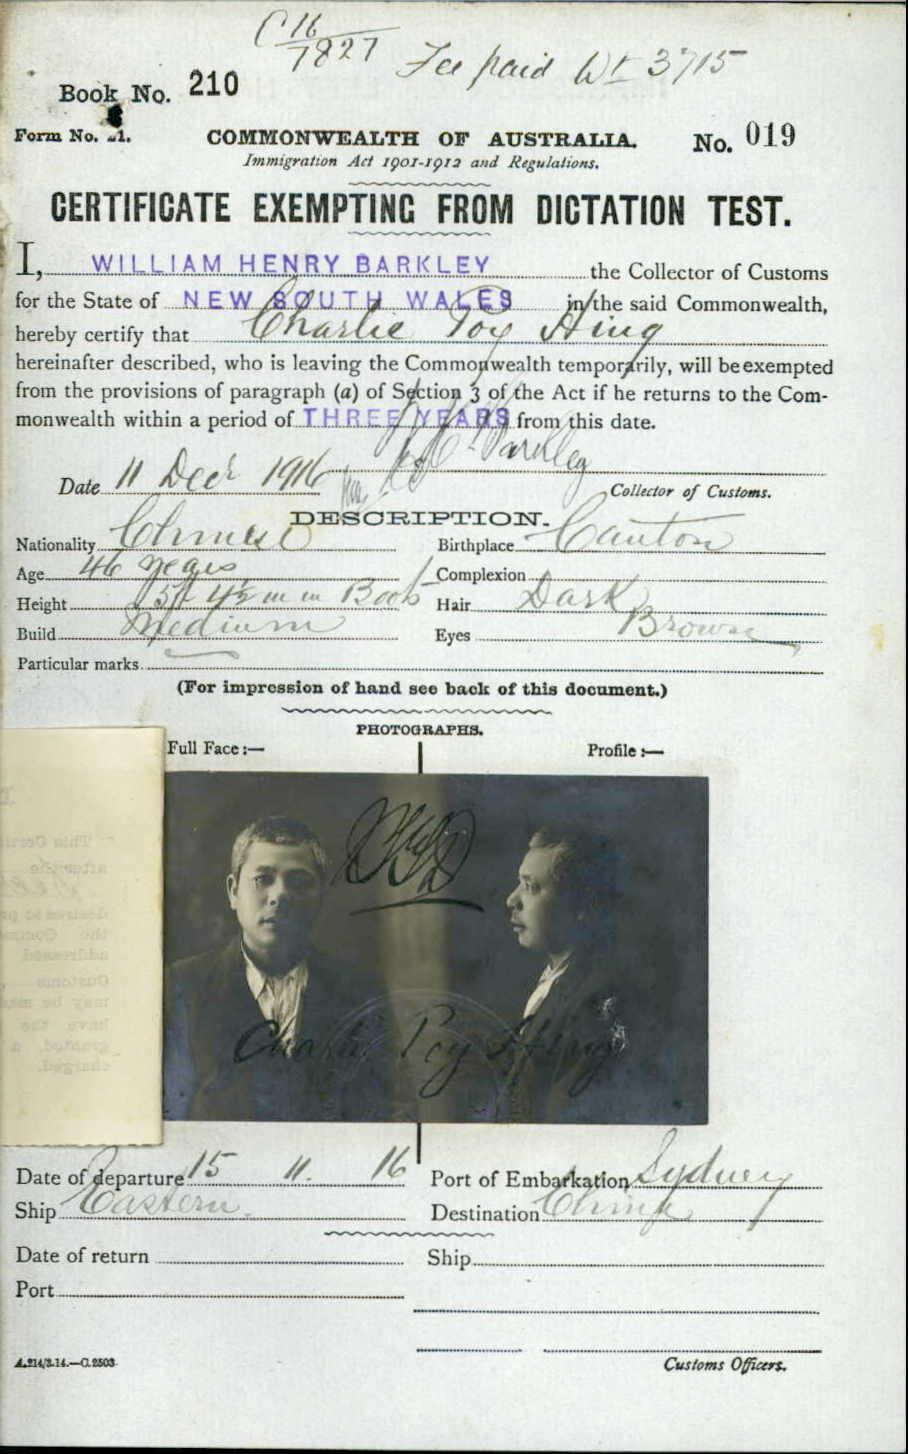 C 16/7827 Fee paid Wt 3715
Book No. 210
Form No. 21. COMMONWEALTH OF AUSTRALIA. No. 019
Immigration Act 1901-1912 and Regulations.
CERTIFICATE EXEMPTING FROM DICTATION TEST.
I, WILLIAM HENRY BARKLEY the Collector of Customs
for the State of NEW SOUTH WALES in the said Commonwealth,
hereby certify that Charlie Poy Hing
hereinafter described, who is leaving the Commonwealth temporarily, will be exempted
from the provisions of paragraph (a) of Section 3 of the Act if he returns to the Com-
monwealth within a period of THREE YEARS from this date.
Barkley
Date 11 Decr 1916 Collector of Customs.
DESCRIPTION.
Nationality Chinese Birthplace Canton
Age 46 years Complexion
Height 5ft 4½ in in Boots Hair Dark
Build Medium Eyes Brown
Particular marks
(For impression of hand see back of this document.)
PHOTOGRAPHS.
Full Face :— Profile :—
Charlie Poy Hing
Date of departure 15 11. 16 Port of Embarkation Sydney
Ship Eastern. Destination China
Date of return Ship
Port
A.214/3.14.—C.2503 Customs Officers.